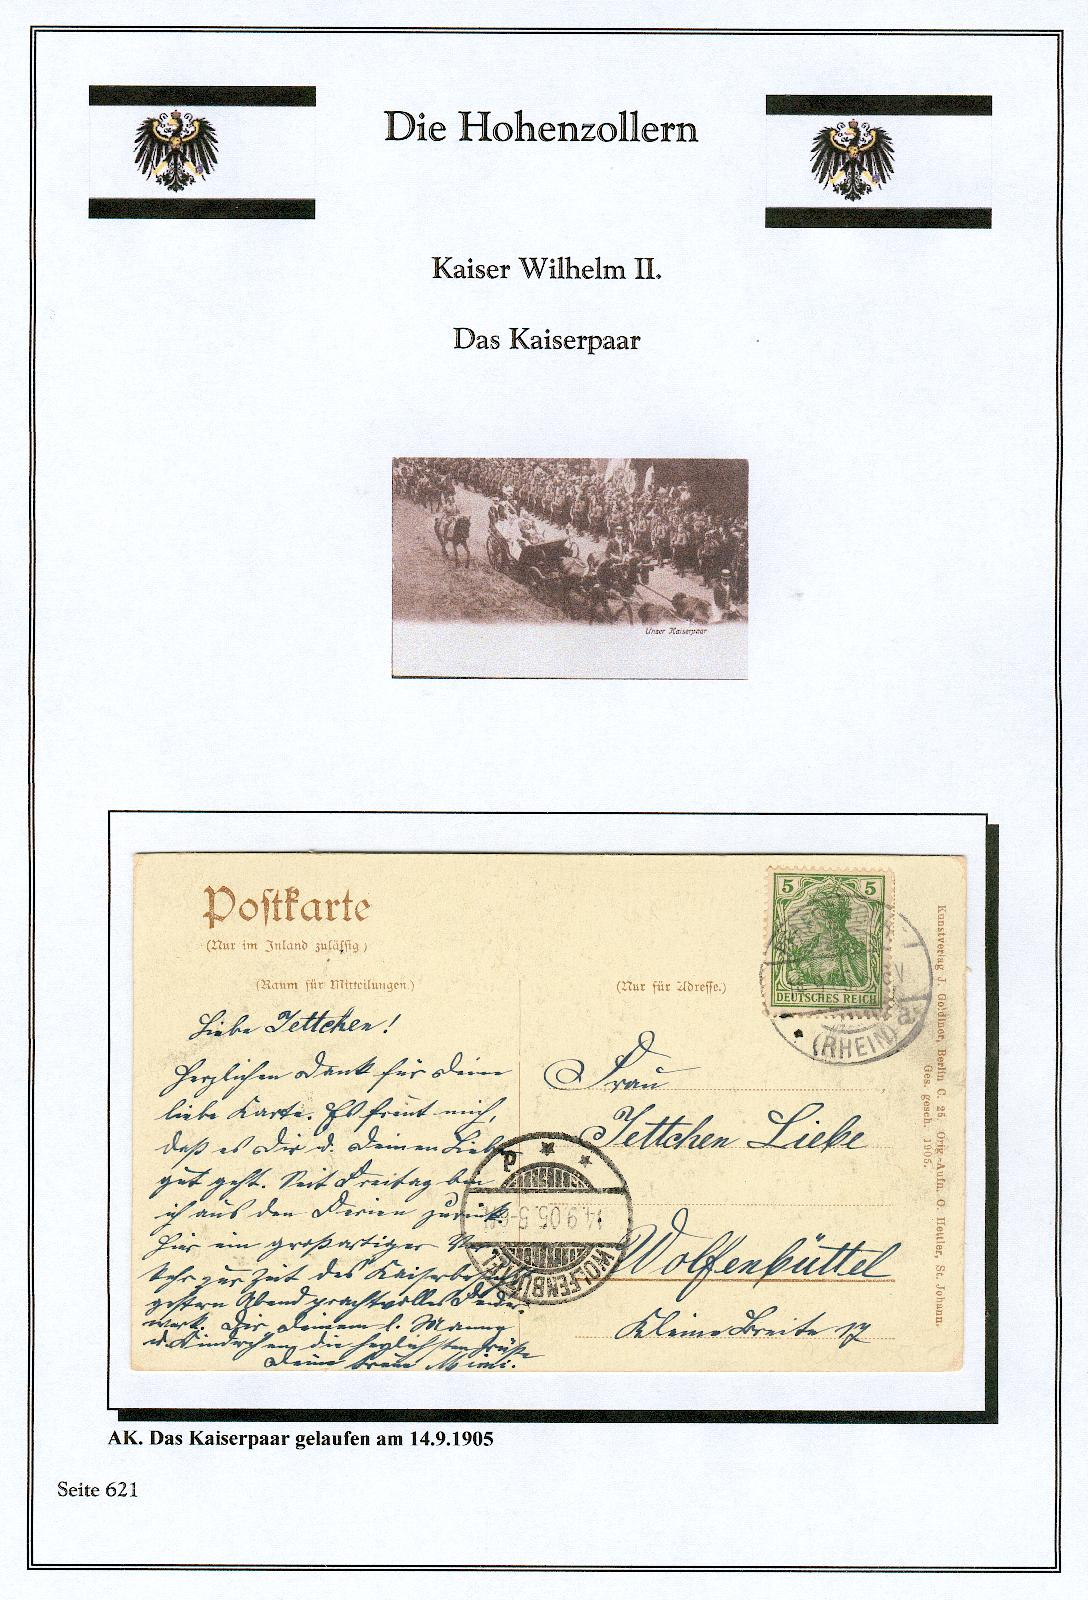 Die Hohenzollern
Kaiser Wilhelm II.
Das Kaiserpaar
Unser Kaiserpaar
Postkarte
(Nur im Inland zulässig)
(Raum für Mitteilungen.)
(Nur für Adresse.)
5 5
DEUTSCHES REICH
(RHEIN)
a
Kunstverlag J. Goldiner, Berlin C. 25. Orig.-Aufn. O. Hettler, St. Johann.
Ges. gesch. 1905.
Liebe Jettchen!
Herzlichen Dank für Deine
liebe Karte. Es freut mich,
daß es Dir u. Deinen Lieben
gut geht. Seit Freitag bin
ich aus den Ferien zurück.
Hier ein großartiger Ver-
kehr zur Zeit des Kaiserbesuchs
gestern Abend prachtvolles Feuer-
werk. Dir Deinem l. Manne
u. Kindchen die herzlichsten Grüße
Deine treue Mimi.
Frau
Jettchen Liebe
Wolfenbüttel
Kleine Breite 17
WOLFENBÜTTEL
14.9.05.5-6N
AK. Das Kaiserpaar gelaufen am 14.9.1905
Seite 621